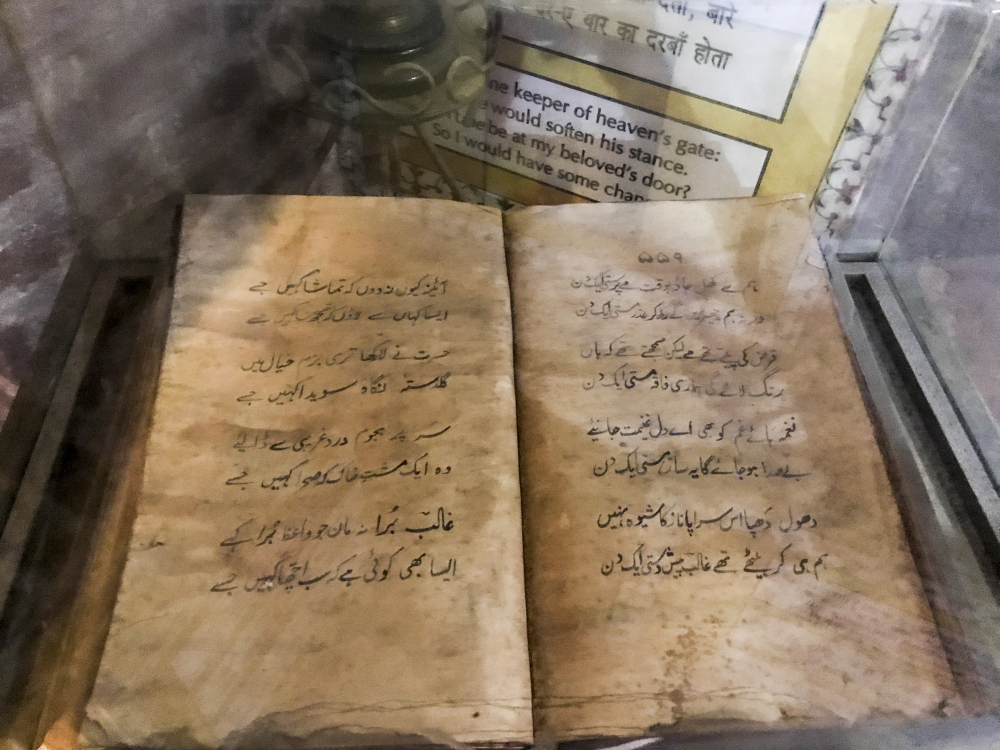 देता, बारे
का दरबाँ होता
keeper of heaven's gate:
would soften his stance.
be at my beloved's door?
So I would have some
۵۵۹
ہم سے کھل جاؤ بوقت مے پرستی ایک دن
ورنہ ہم چھیڑیں گے رکھ کر عذر مستی ایک دن
قرض کی پیتے تھے مے لیکن سمجھتے تھے کہ ہاں
رنگ لائے گی ہماری فاقہ مستی ایک دن
نغمہ ہائے غم کو بھی اے دل غنیمت جانیے
بے صدا ہو جائے گا یہ ساز ہستی ایک دن
دھول دھپا اس سراپا ناز کا شیوہ نہیں
ہم ہی کر بیٹھے تھے غالب پیش دستی ایک دن
آئینہ کیوں نہ دوں کہ تماشا کہیں جسے
ایسا کہاں سے لاؤں کہ تجھ سا کہیں جسے
حسرت نے لا رکھا تری بزم خیال میں
گلدستہ نگاہ سویدا کہیں جسے
سر پر ہجوم درد غریبی سے ڈالیے
وہ ایک مشت خاک کہ صحرا کہیں جسے
غالب بُرا نہ مان جو واعظ بُرا کہے
ایسا بھی کوئی ہے کہ سب اچھا کہیں جسے